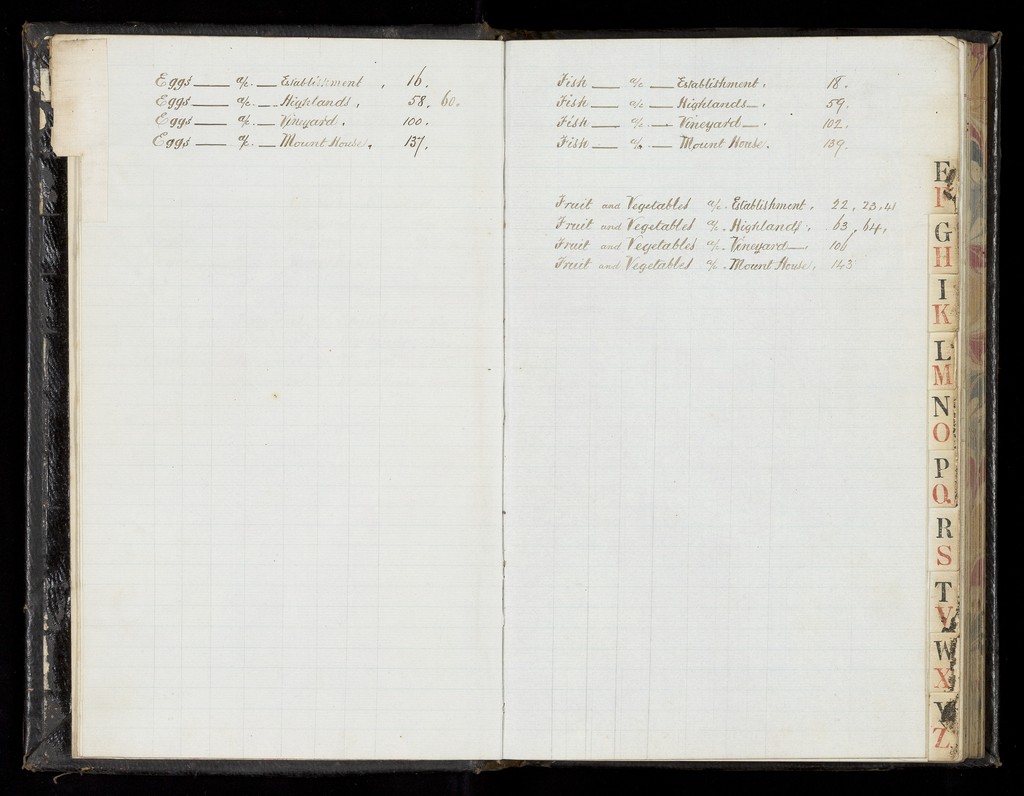 Eggs — a/c. — Establishment . 16.
Eggs — a/c. — Highlands . 58. 60.
Eggs — a/c. — Vineyard . 100.
Eggs — a/c. — Mount House . 137.
Fish — a/c — Establishment . 18.
Fish — a/c — Highlands — . 59.
Fish — a/c — Vineyard — . 102.
Fish — a/c. — Mount House . 139.
Fruit and Vegetables a/c. Establishment . 22, 23, 41
Fruit and Vegetables a/c. Highlands . 63, 64,
Fruit and Vegetables a/c. Vineyard — 106
Fruit and Vegetables a/c. Mount House . 143
E
F
G
H
I
K
L
M
N
O
P
Q
R
S
T
V
W
X
Y
Z